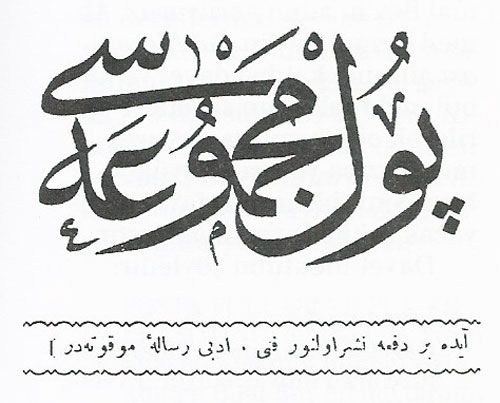 پول مجموعه‌سی
آیده بر دفعه نشر اولنور فنی ، ادبی رسالۀ موقوته‌در ]